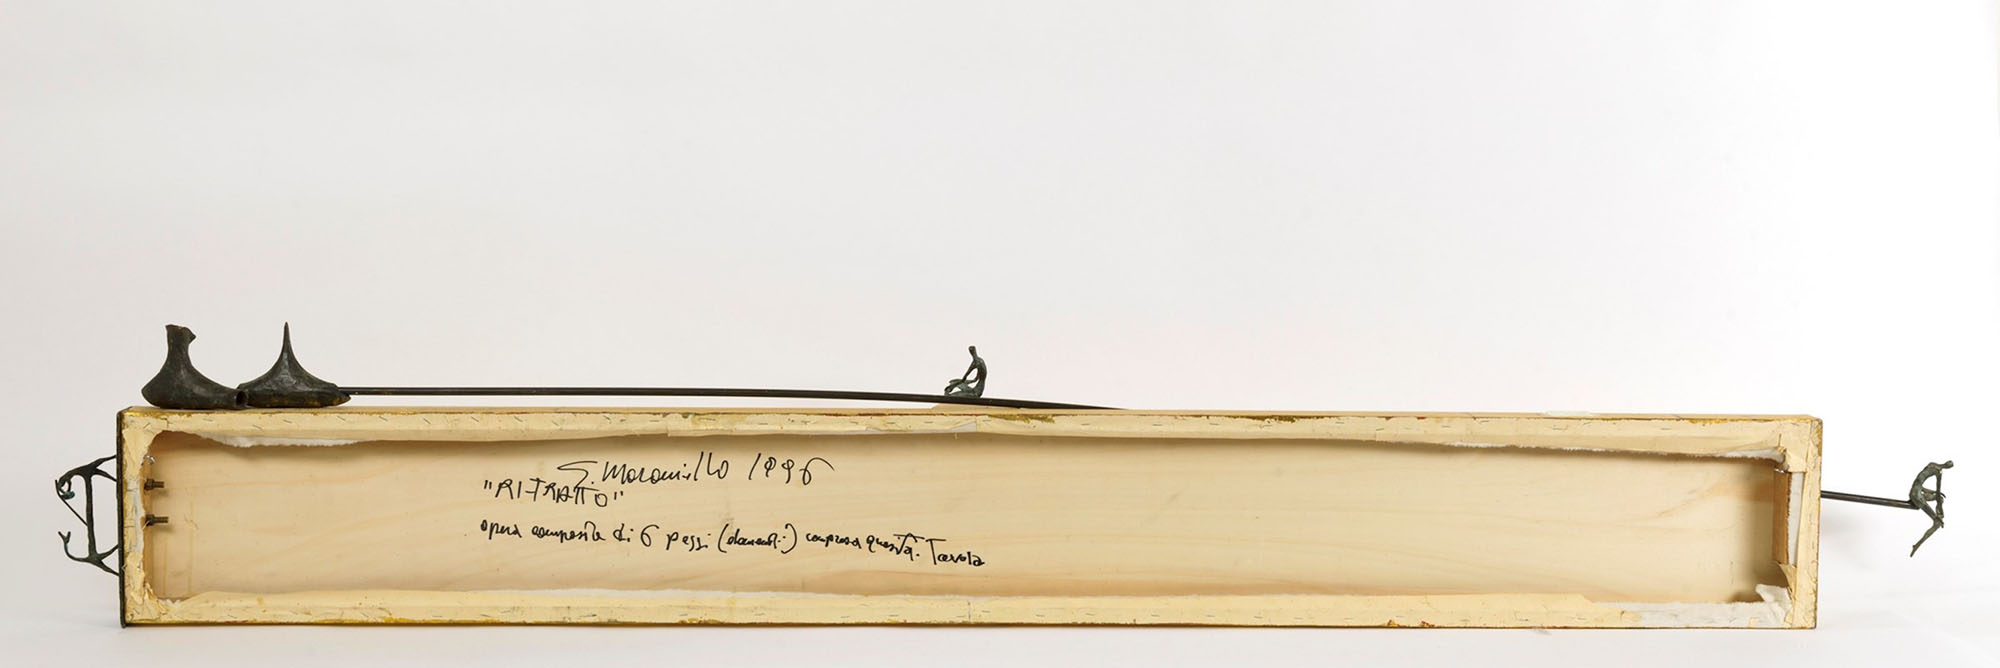 G. Maraniello 1996
"RITRATTO"
opera composta di 6 pezzi (elementi) compresa questa. Tavola